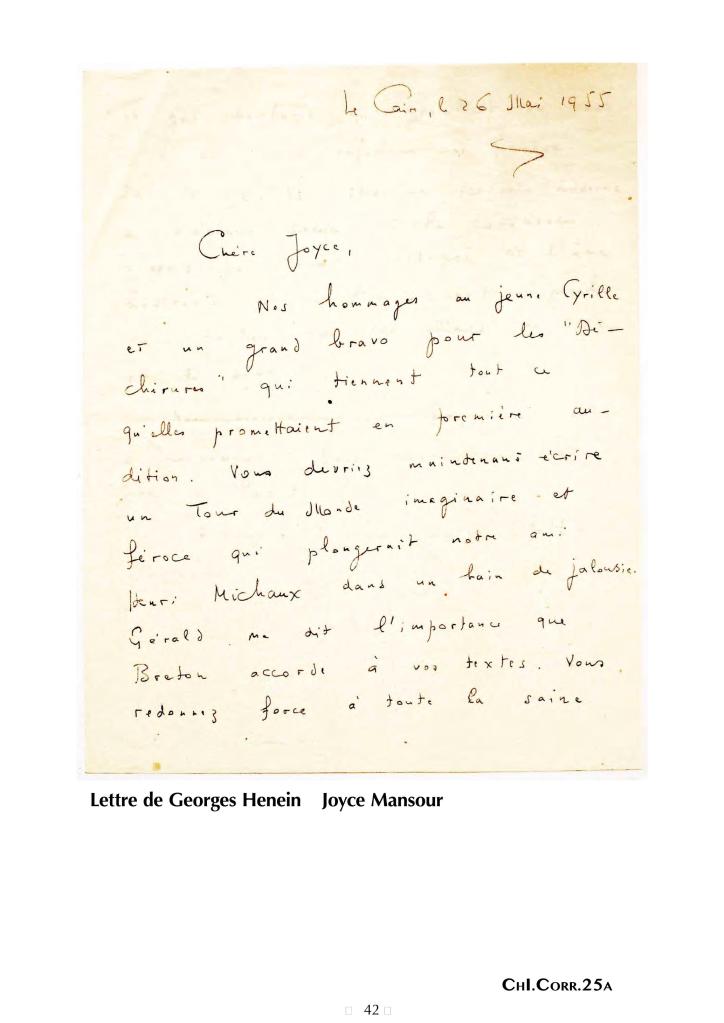 Le Caire, le 26 Mai 1955
Chère Joyce,
Nos hommages au jeune Cyrille
et un grand bravo pour les "Dé-
chirures" qui tiennent tout ce
qu'elles promettaient en première au-
dition. Vous devriez maintenant écrire
un Tour du Monde imaginaire et
féroce qui plongerait notre ami
Henri Michaux dans un bain de jalousie.
Gérald me dit l'importance que
Breton accorde à vos textes. Vous
redonnez force à toute la saine
Lettre de Georges Henein Joyce Mansour
CHI.CORR.25A
42